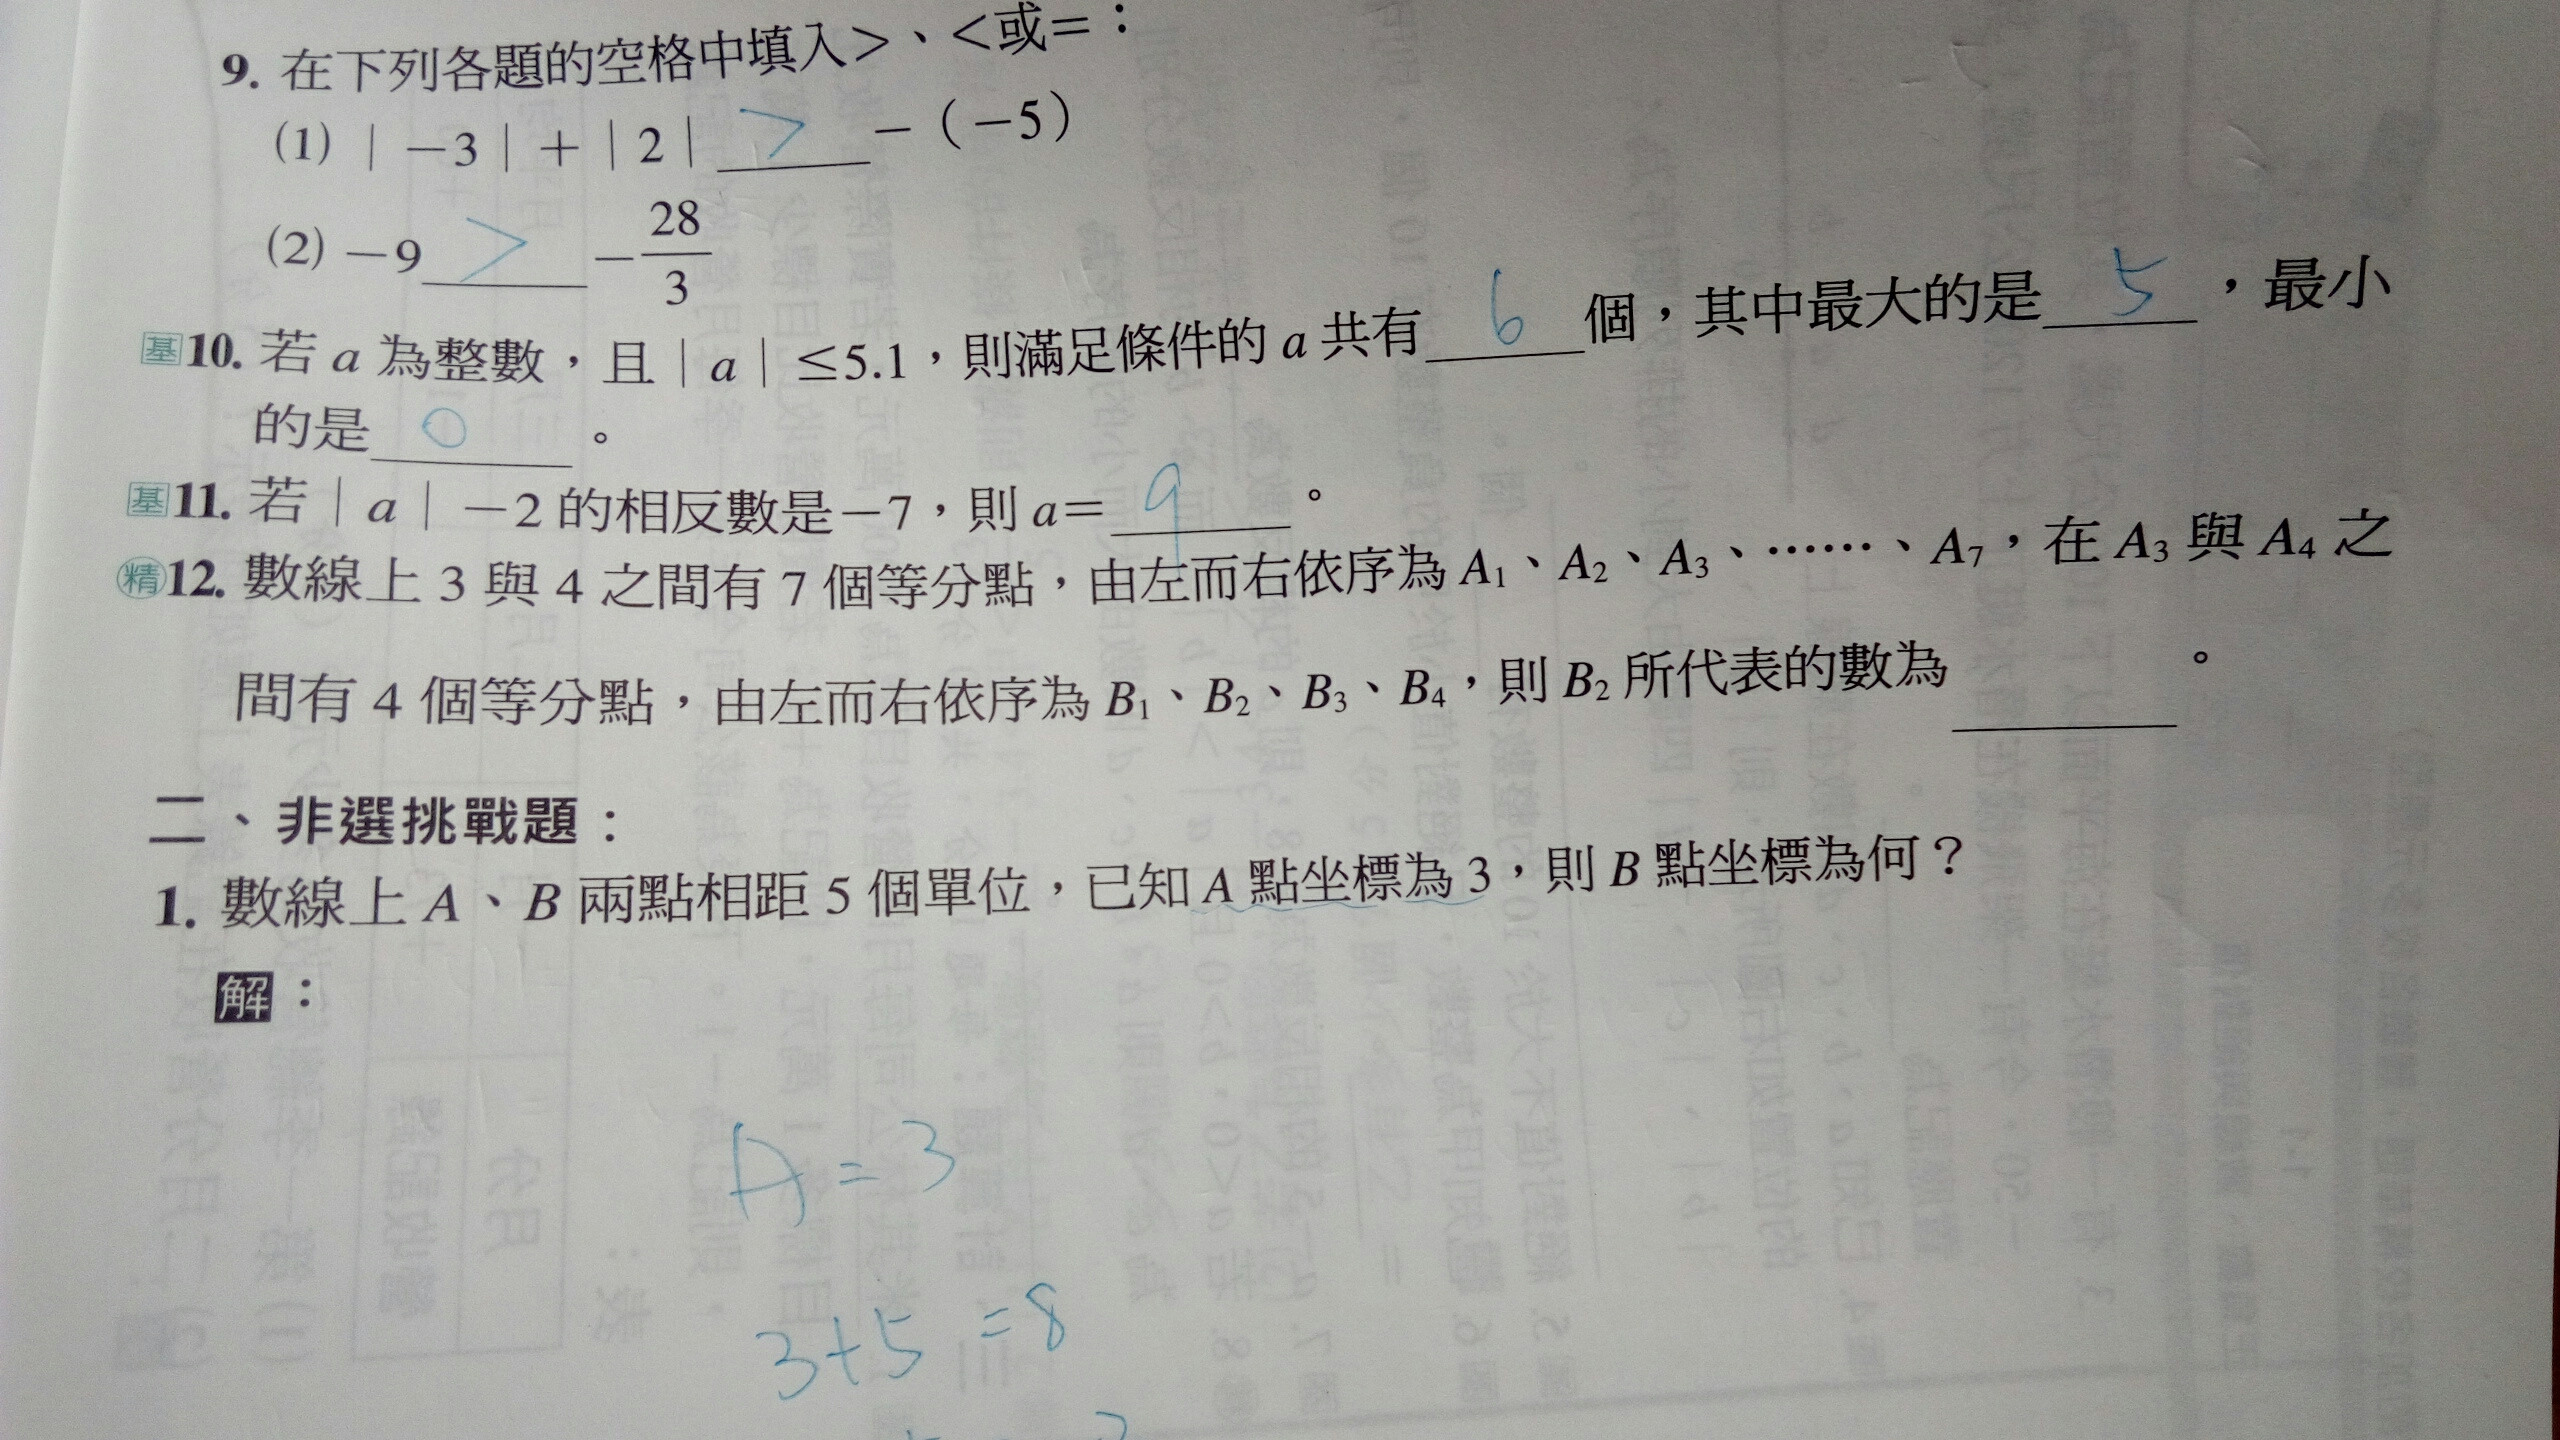 9. 在下列各題的空格中填入>、<或=：
(1) | -3 | + | 2 | > -（-5）
(2) -9 > -28/3
基10. 若 a 為整數，且 | a | ≤5.1，則滿足條件的 a 共有 6 個，其中最大的是 5 ，最小
的是 0 。
基11. 若 | a | -2 的相反數是-7，則 a= 9 。
精12. 數線上 3 與 4 之間有 7 個等分點，由左而右依序為 A₁、A₂、A₃、……、A₇，在 A₃ 與 A₄ 之
間有 4 個等分點，由左而右依序為 B₁、B₂、B₃、B₄，則 B₂ 所代表的數為 ＿＿＿ 。
二、非選挑戰題：
1. 數線上 A、B 兩點相距 5 個單位，已知 A 點坐標為 3，則 B 點坐標為何？
解：
A = 3
3+5 = 8